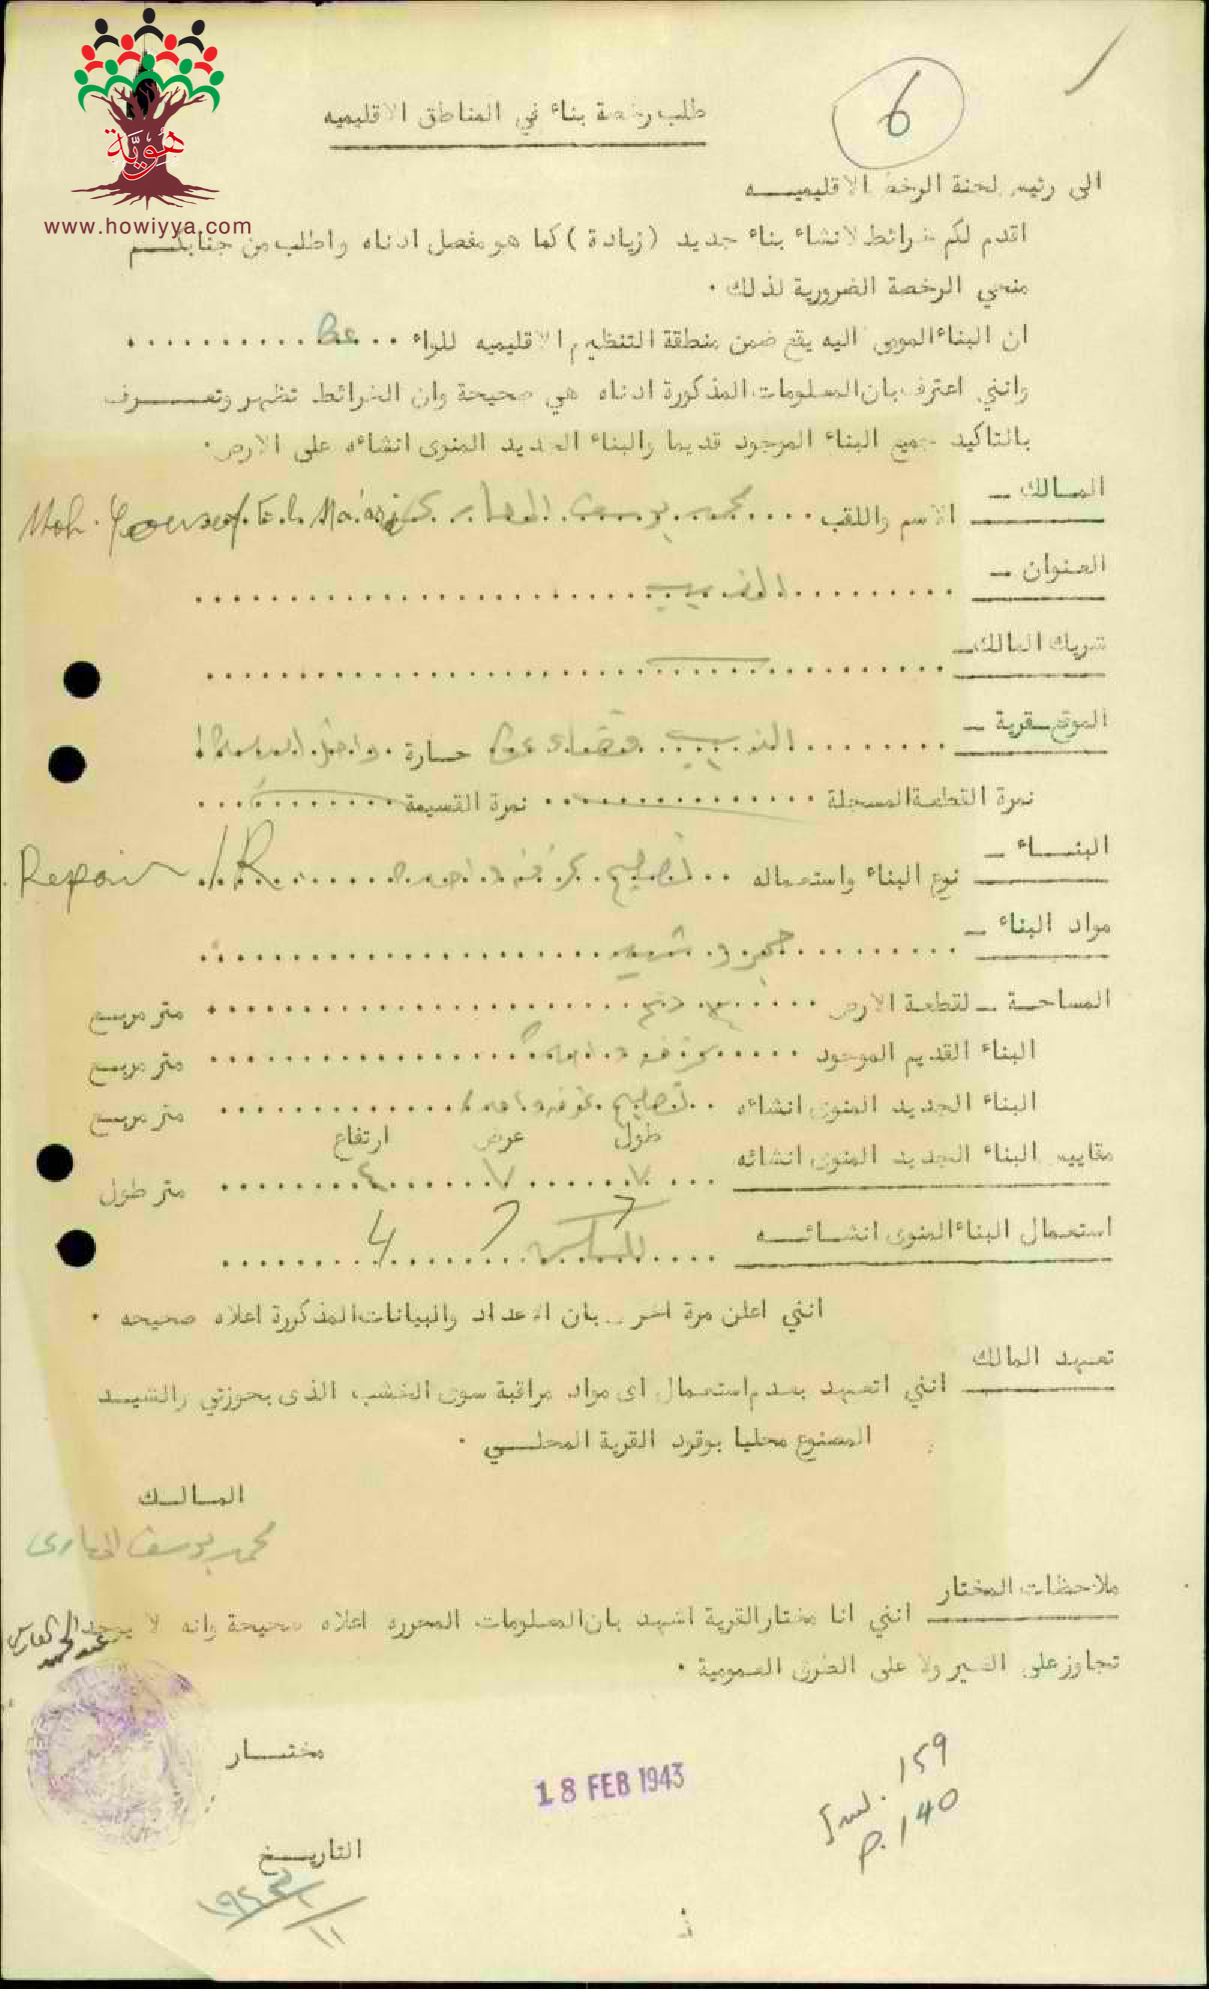 هوية
www.howiyya.com
6
طلب رخصة بناء في المناطق الاقليميه
الى رئيس لجنة الرخص الاقليميـــه
اقدم لكم خرائط لانشاء بناء جديد (زيادة) كما هو مفصل ادناه واطلب من جنابكـــم
منحي الرخصة الضرورية لذلك .
ان البناء المومى اليه يقع ضمن منطقة التنظيم الاقليميه للواء عكا
وانني اعترف بان المعلومات المذكورة ادناه هي صحيحة وان الخرائط تظهر وتعـــرف
بالتاكيد جميع البناء الموجود قديما والبناء الجديد المنوى انشاءه على الارض .
المالك – الاسم واللقب محمد يوسف Moh. Yousef El
العنوان – الزيب
شريك المالك –
الموقع – قرية – الزيب قضاء عكا حارة داخل
نمرة القطعة المسجلة نمرة القسيمة
البنــاء – نوع البناء واستعماله تصليح غرفه واحده R / Repair
مواد البناء – حجر و شيد
المساحة – لقطعة الارض دنم متر مربع
البناء القديم الموجود غرفه واحده متر مربع
البناء الجديد المنوى انشاءه تصليح غرفه واحده متر مربع
طول عرض ارتفاع
مقاييس البناء الجديد المنوى انشائه ٧ ٧ ٤ متر طول
7 7 4
استعمال البناء المنوى انشائــه للسكن
انني اعلن مرة اخرى بان الاعداد والبيانات المذكورة اعلاه صحيحه .
تعهد المالك انني اتعهد بعدم استعمال اى مواد مراقبة سوى الخشب الذى بحوزتي والشيـــد
المصنوع محليا بوقود القرية المحلــي .
المـالـك
محمد يوسف
ملاحظات المختار انني انا مختار القرية اشهد بان المعلومات المحرره اعلاه صحيحة وانه لا يوجد
تجاوز على الغير ولا على الطرق العمومية .
مختـــار
18 FEB 1943
159
P. 140
التاريــخ
١١